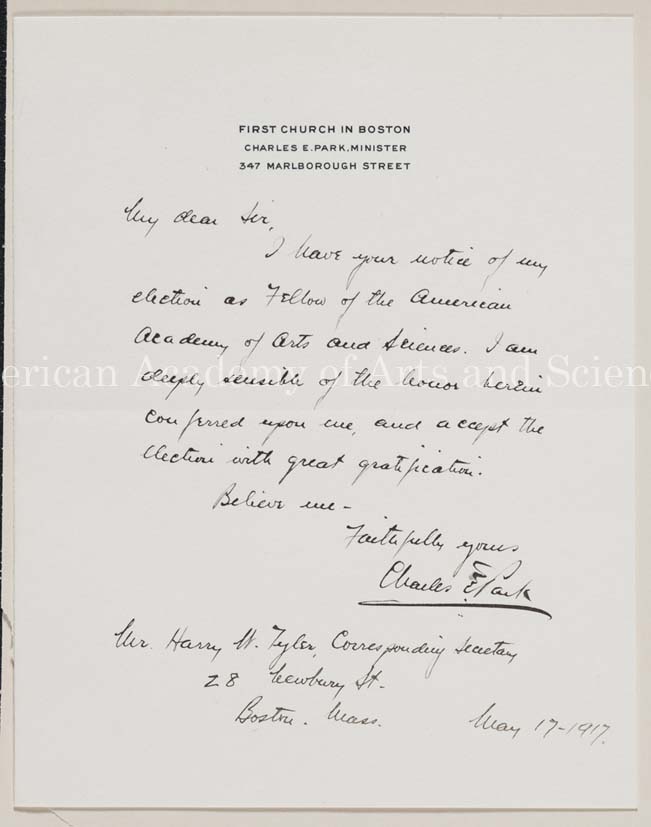 FIRST CHURCH IN BOSTON
CHARLES E. PARK, MINISTER
347 MARLBOROUGH STREET
My dear Sir,
I have your notice of my
election as Fellow of the American
Academy of Arts and Sciences. I am
erican Academy of Arts and Scienc
deeply sensible of the honor herein
conferred upon me, and accept the
election with great gratification.
Believe me -
Faithfully yours
Charles E. Park
Mr. Harry W. Tyler, Corresponding Secretary
28 Newbury St.
Boston. Mass.
May 17-1917.